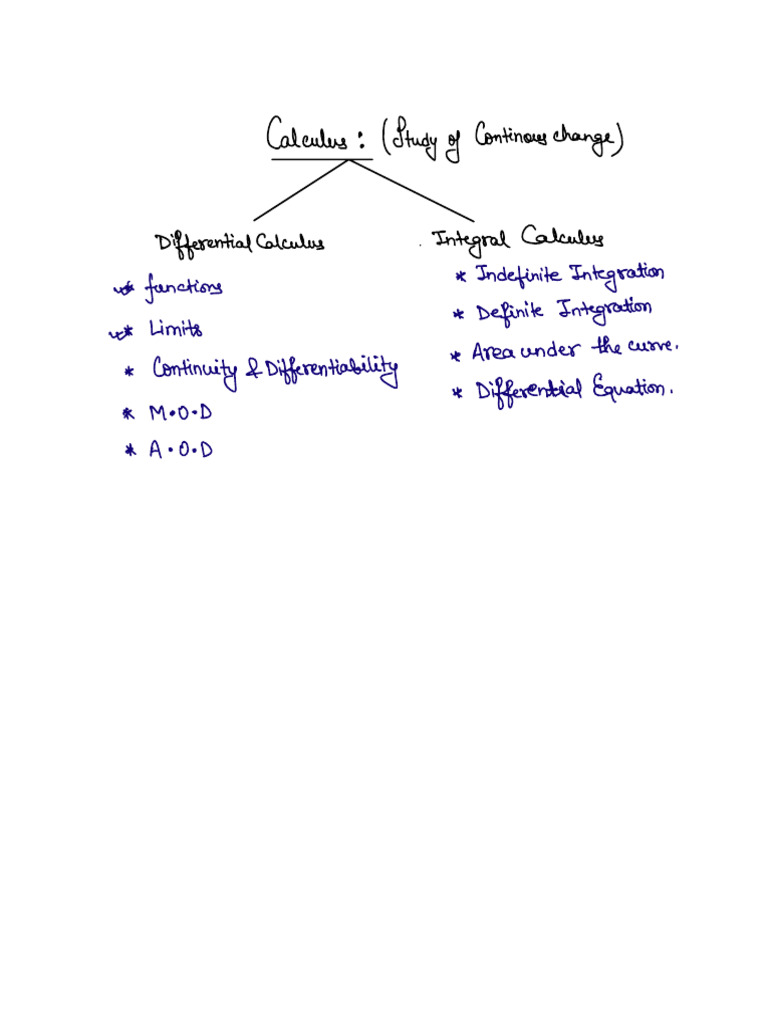 Calculus: (Study of Continous change)
Differential Calculus
* functions
* Limits
* Continuity & Differentiability
* M.O.D
* A.O.D
Integral Calculus
* Indefinite Integration
* Definite Integration
* Area under the curve.
* Differential Equation.